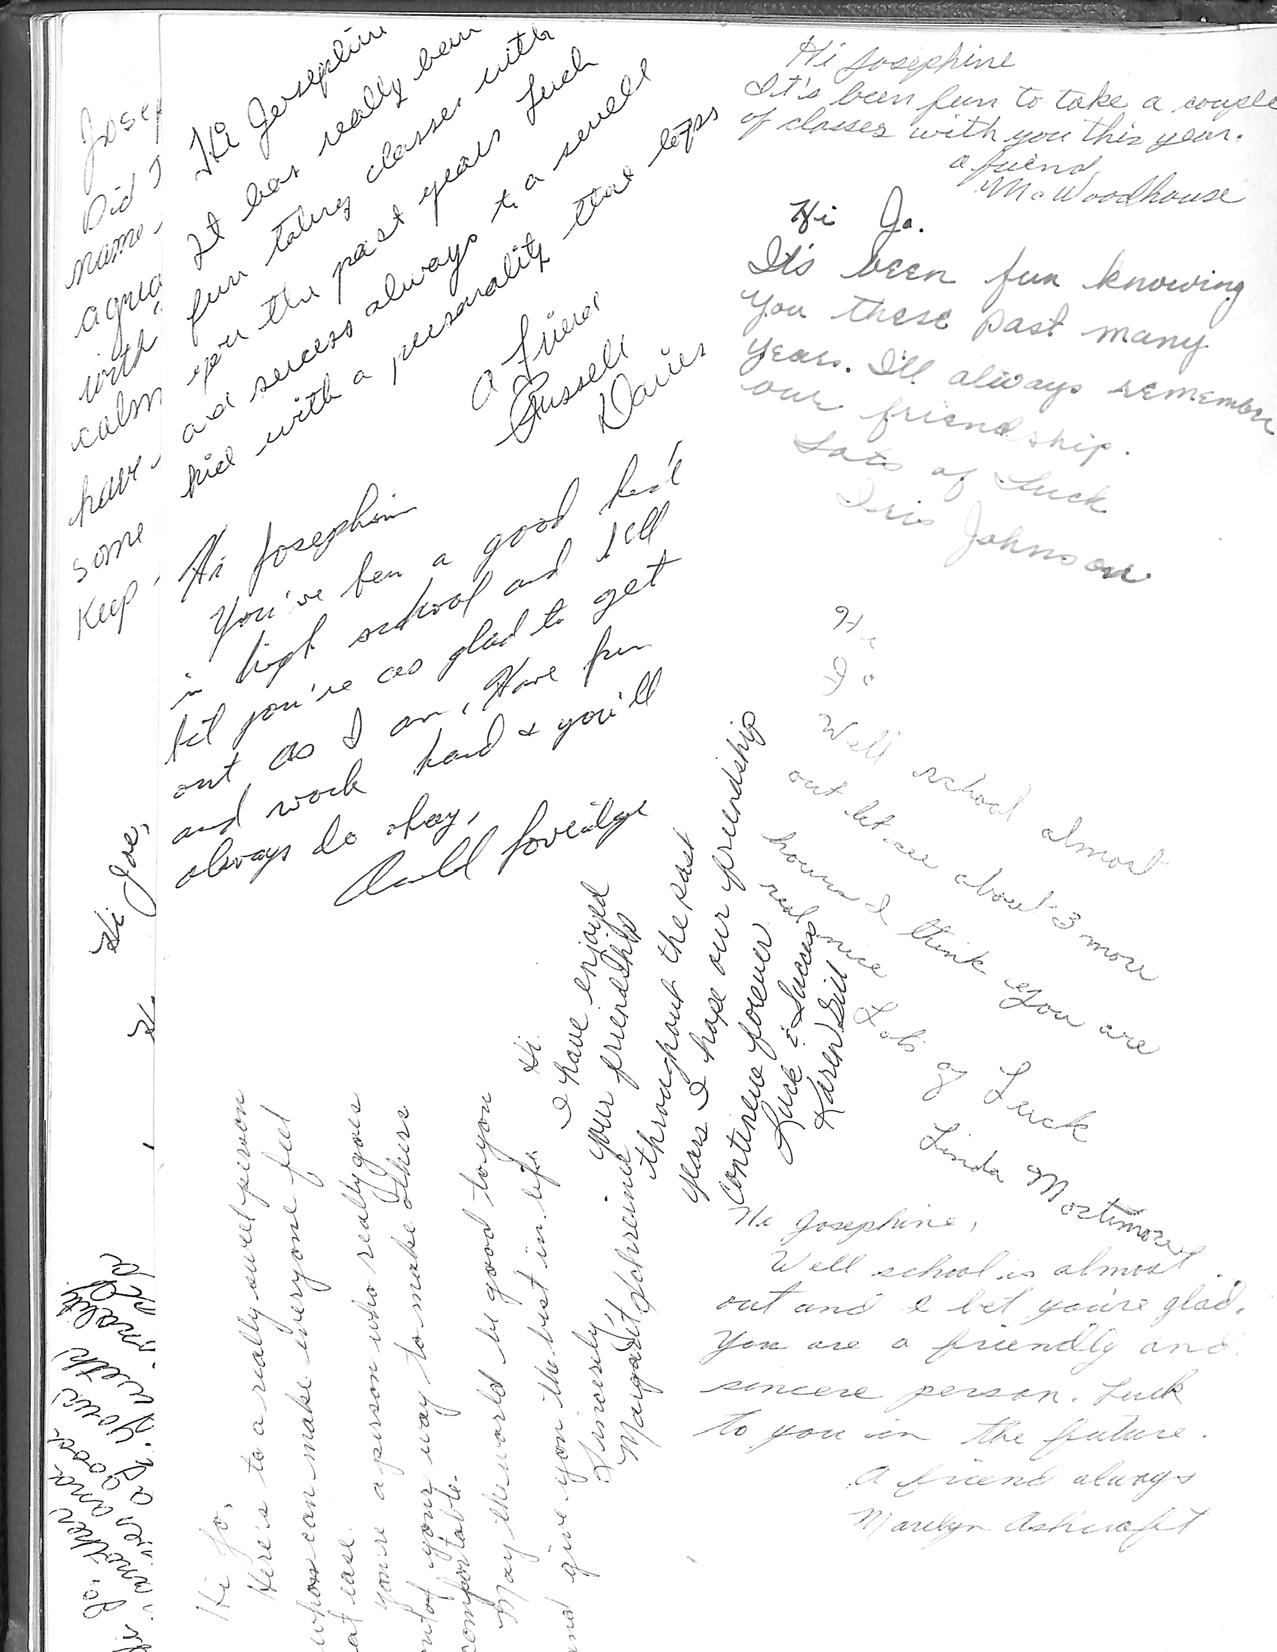 Hi Josephine
It has really been
fun taking classes with
you the past years Luck
and success always to a swell
kid with a personality that tops
a friend
Russell
Davies
Hi Josephine
You've ben a good kid
in high school and I'll
bet you're as glad to get
out as I am, Have fun
and work hard & you'll
always do okay,
Hi Josephine
It's been fun to take a couple
of classes with you this year.
a friend,
Mc Woodhouse
Hi Jo.
It's been fun knowing
you these past many
years. I'll always remember
our friendship.
Lots of Luck
Iris Johnson
Hi
Jo
Well school almost
out let see about 3 more
hours I think you are
real nice
Lots of Luck
Linda Mortimore
Hi
I have enjoyed
your friendship
throughout the past
years I hope our friendship
continue forever
Luck & Success
Karen Gill
Hi Josephine,
Well school is almost
out and I bet you're glad.
You are a friendly and
sincere person. Luck
to you in the future.
A friend always
Marilyn Ashcroft
Hi Jo,
Here's to a really sweet person
whom can make everyone feel
at ease.
You're a person who really goes
out of your way to make others
comfortable.
May the world be good to you
and give you the best in life
Sincerely,
Margaret Schreiner
Did I
name
with
calm
have
some
Keep
Hi Joe,